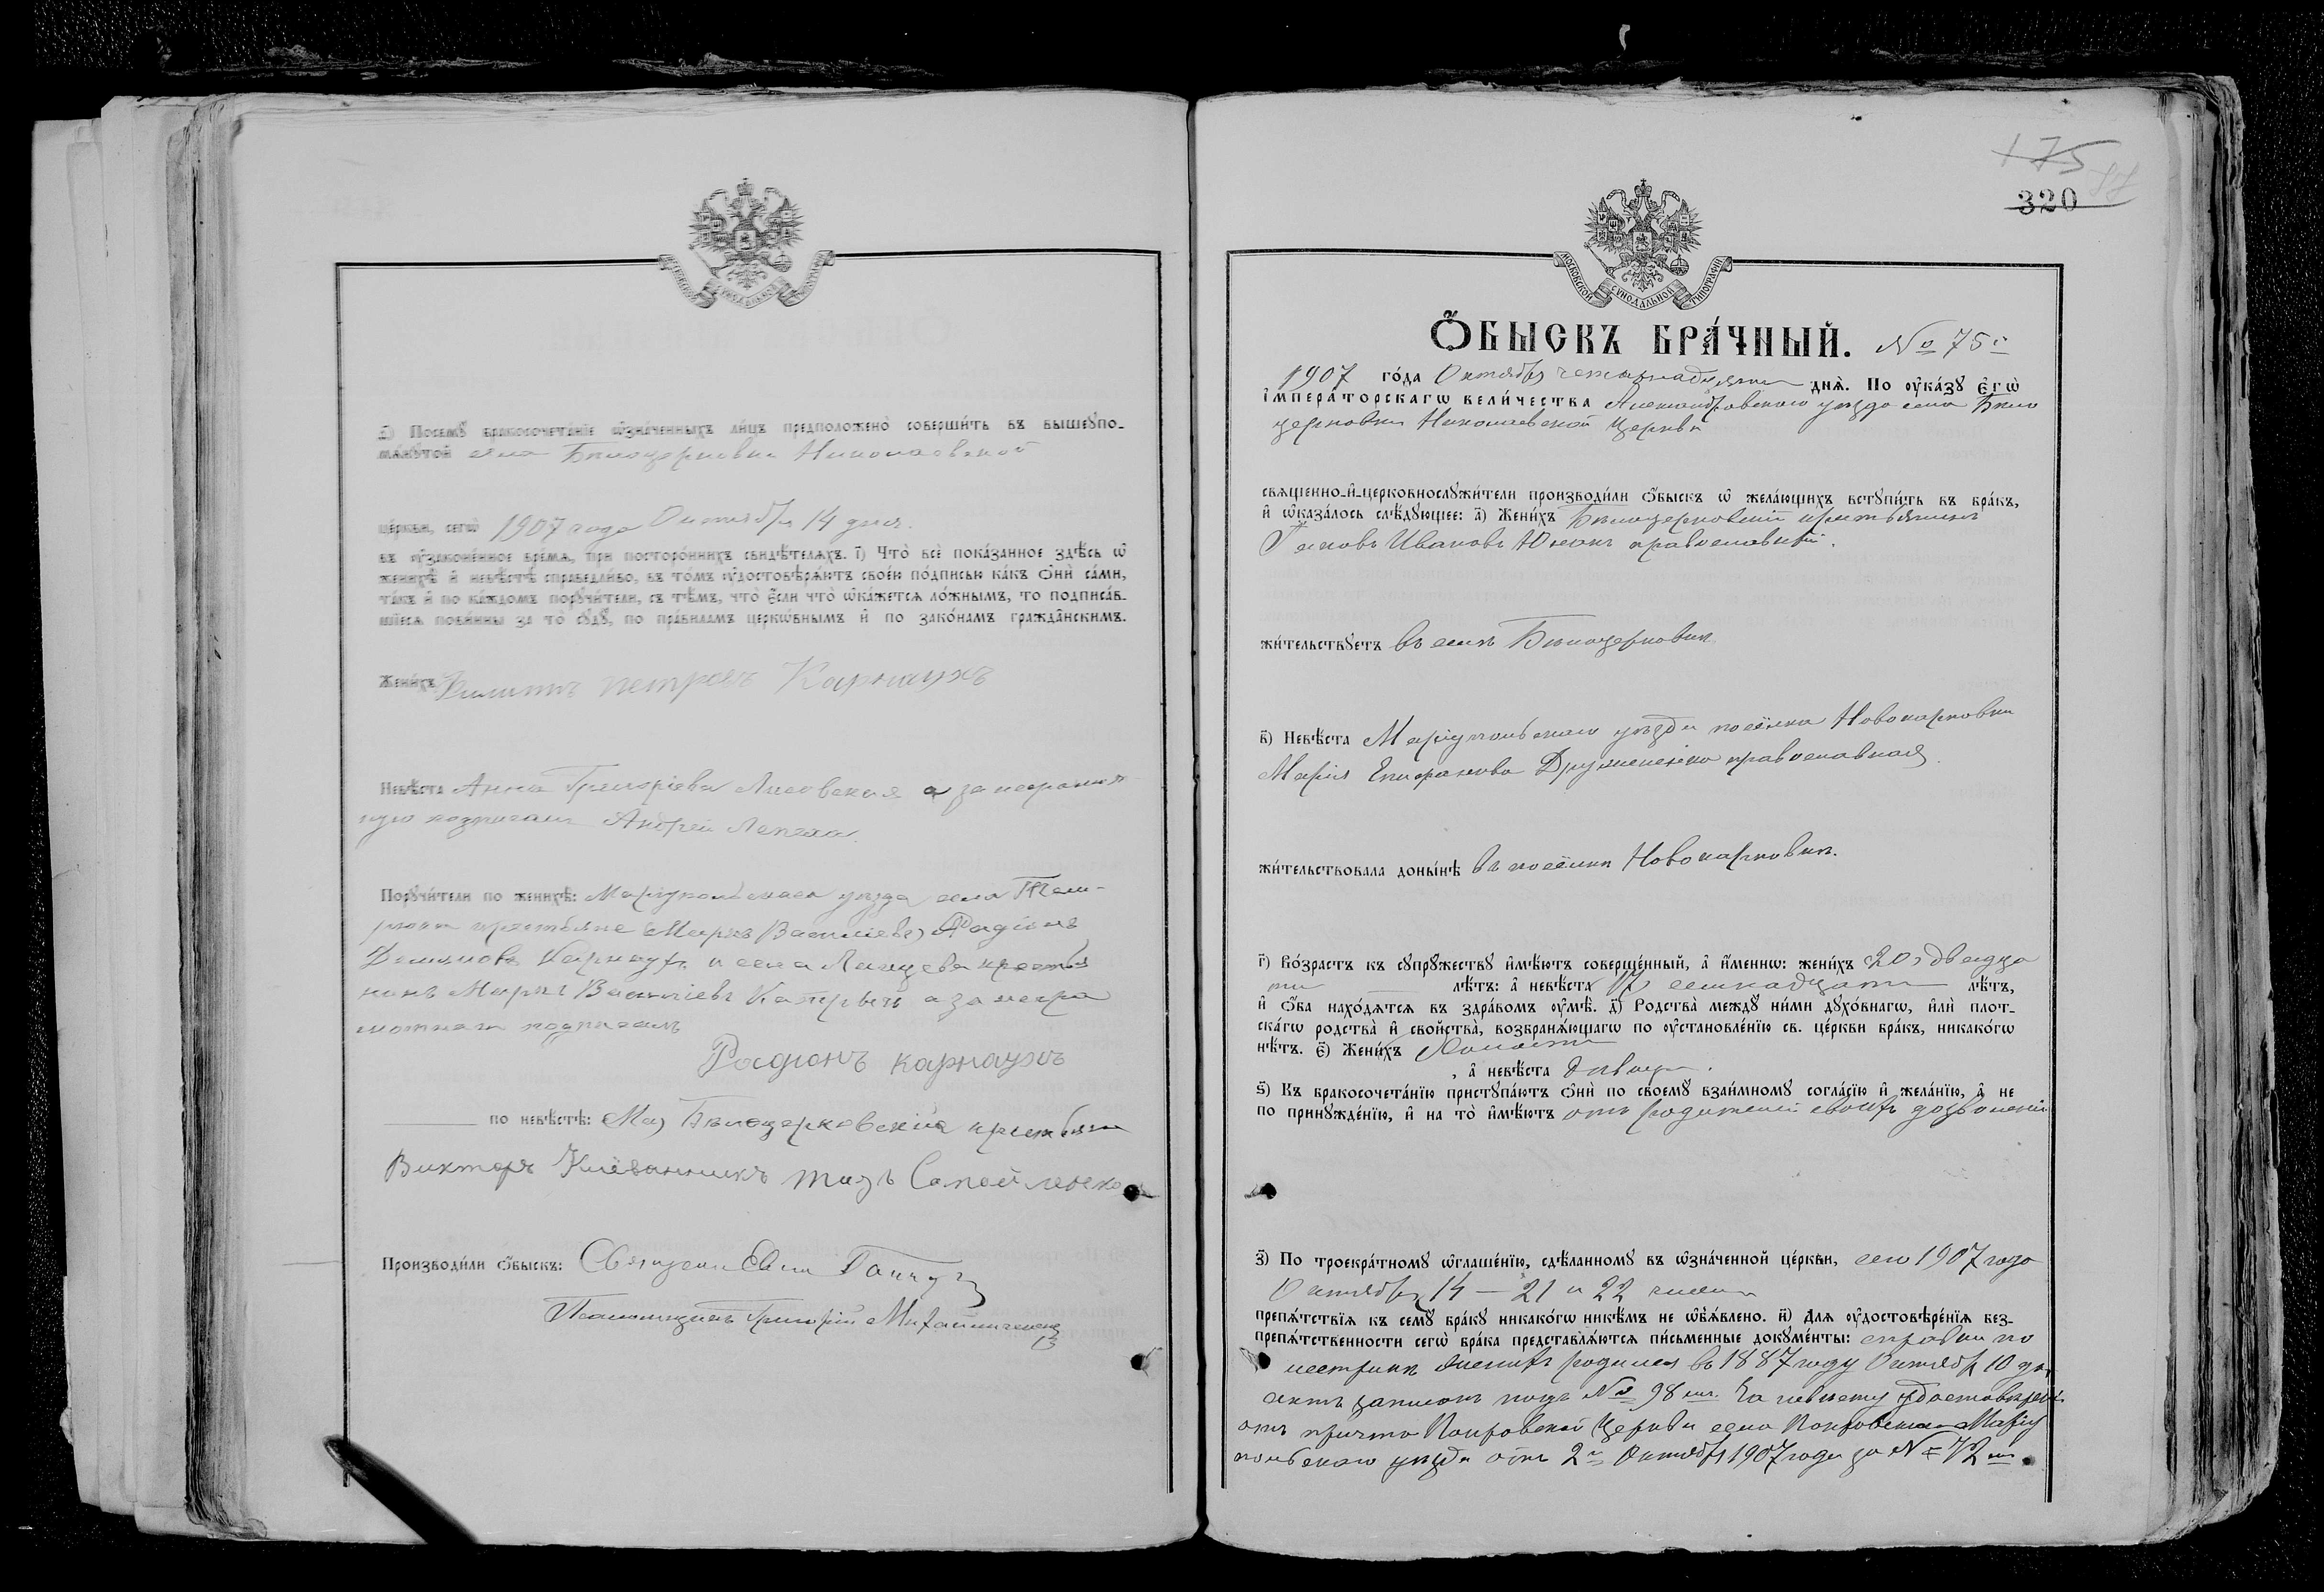 ѳ҃) Посемꙋ̀ бракосочета́нїе ѡ҆зна́ченныхъ ли́цъ предположено̀ соверши́ть въ вышеꙋпо-
мѧ́нꙋтой села Белоцерковки Николаевской
це́ркви, сегѡ̀ 1907 года Октября 14 дня.
въ ᲂу҆зако́ненное вре́мѧ, при посторо́ннихъ свидѣ́телѧхъ. і҃) Что̀ всѐ пока́занное здѣ́сь ѡ҆
женихѣ̀ и҆ невѣ́стѣ справедли́во, въ то́мъ ᲂу҆достовѣрѧ́ютъ свое́ю по́дписью ка́къ ѻ҆нѝ са́ми,
та́къ и҆ по ка́ждомъ порꙋчи́тели, съ тѣ́мъ, что̀ є҆́сли что̀ ѡ҆ка́жетсѧ ло́жнымъ, то подписа́в-
шїесѧ пови́нны за то̀ сꙋдꙋ̀, по пра́виламъ церкѡ́внымъ и҆ по зако́намъ гражда́нскимъ.
Жени́хъ Филиппъ Петровъ Карнаухъ
Невѣ́ста Анна Григоріева Лисовская а за неграмот
ную подписалъ Андрей Лепеха
Порꙋчи́тели по женихѣ̀: Маріупольскаго уѣзда села Тем-
рюка крестьяне Маркъ Васильевъ, Радіонъ
Демьяновъ Карнаухъ и села крестья
нинъ Маркъ Васильевъ а за негра
мотнаго подписалъ
Радіонъ Карнаухъ
по невѣ́стѣ: Белоцерковскіе крестьяне
Викторъ
Производи́ли ѻ҆́быскъ: Священ
Псаломщикъ Григорій Михайличенко
175
320
МОСКОВСКОЙ СѴНОДАЛЬНОЙ ТИПОГРАФІИ
Ѻ҆́БЫСКЪ БРА́ЧНЫЙ. № 75й
1907 го́да Октября четырнадцатаго днѧ̀. По ᲂу҆ка́зꙋ Є҆гѡ̀
і҆мпера́торскагѡ вели́чества Александровскаго уѣзда села Бело
церковки Николаевской церкви
свѧще́нно-и҆-церковнослꙋжи́тели производи́ли ѻ҆́быскъ ѡ҆ жела́ющихъ встꙋпи́ть въ бра́къ,
и҆ ѡ҆каза́лось слѣ́дꙋющее: а҃) Жени́хъ Белоцерковскій крестьянинъ
Яковъ Ивановъ православный.
жи́тельствꙋетъ въ селѣ Белоцерковкѣ
в҃) Невѣ́ста Маріупольскаго уѣзда посёлка Новокарповки
Марія Епифанова православная.
жи́тельствовала доны́нѣ въ посёлкѣ Новокарповкѣ.
г҃) Во́зрастъ къ сꙋпрꙋ́жествꙋ и҆мѣ́ютъ соверше́нный, а҆ и҆́меннѡ: жени́хъ 20, двадца
ти лѣ́тъ: а҆ невѣ́ста 17 семнадцати лѣ́тъ,
и҆ ѻ҆́ба нахо́дѧтсѧ въ здра́вомъ ᲂу҆мѣ̀. д҃) Родства̀ междꙋ ни́ми дꙋхо́внагѡ, и҆лѝ пло́т-
ска́гѡ родства̀ и҆ свойства̀, возбранѧ́ющагѡ по ᲂу҆становле́нїю св. це́ркви бра́къ, никако́гѡ
нѣ́тъ. є҃) Жени́хъ Холостъ
, а҆ невѣ́ста дѣвица.
ѕ҃) Къ бракосочета́нїю пристꙋпа́ютъ ѻ҆нѝ по своемꙋ̀ взаи́мномꙋ согла́сїю и҆ жела́нїю, а҆ не
по принꙋжде́нїю, и҆ на то̀ и҆мѣ́ютъ отъ родителей своихъ дозволеніе
з҃) По троекра́тномꙋ ѡ҆глаше́нїю, сдѣ́ланномꙋ въ ѡ҆зна́ченной це́ркви, сего 1907 года
Октября 14 — 21 и 22 числа
препѧ́тствїѧ къ семꙋ̀ бра́кꙋ никако́гѡ никѣ́мъ не ѡ҆б̾ѧ́влено. и҃) Длѧ ᲂу҆достовѣре́нїѧ без-
препѧ́тственности сегѡ̀ бра́ка представлѧ́ютсѧ пи́сьменные докꙋме́нты: справки по
метрикѣ женихъ родился въ 1887 году Октября 10 дня,
актъ записанъ подъ № 98мъ. На невѣсту удостовѣреніе
отъ причта Покровской Церкви села Покровскаго Маріу
польскаго уѣзда отъ 2го Октября 1907 года за № 72мъ.